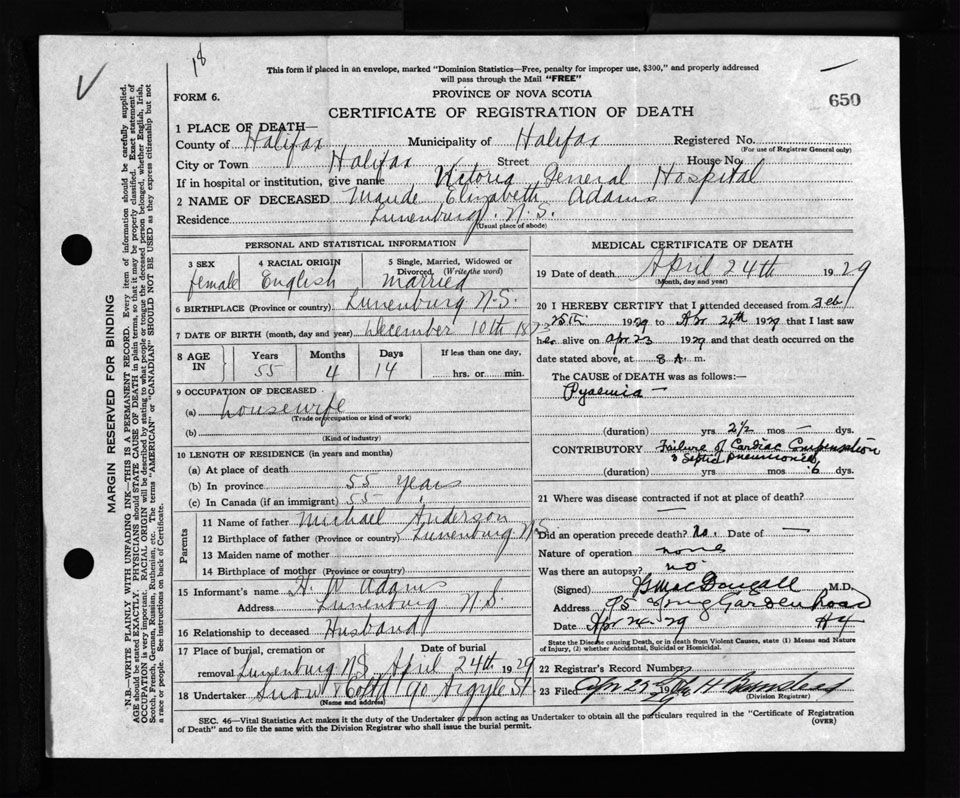 18
This form if placed in an envelope, marked "Dominion Statistics—Free, penalty for improper use, $300," and properly addressed
will pass through the Mail "FREE"
PROVINCE OF NOVA SCOTIA
650
FORM 6.
CERTIFICATE OF REGISTRATION OF DEATH
1 PLACE OF DEATH—
County of Halifax Municipality of Halifax Registered No.
(For use of Registrar General only)
City or Town Halifax Street House No.
If in hospital or institution, give name Victoria General Hospital
2 NAME OF DECEASED Maude Elizabeth Adams
Residence Lunenburg. N.S.
(Usual place of abode)
PERSONAL AND STATISTICAL INFORMATION
3 SEX 4 RACIAL ORIGIN 5 Single, Married, Widowed or
Divorced, (Write the word)
female English Married
6 BIRTHPLACE (Province or country) Lunenburg N.S.
7 DATE OF BIRTH (month, day and year) December 10th 1873
8 AGE IN Years Months Days If less than one day,
55 4 14 hrs. or min.
9 OCCUPATION OF DECEASED
(a) housewife
(Trade or occupation or kind of work)
(b)
(Kind of industry)
10 LENGTH OF RESIDENCE (in years and months)
(a) At place of death
(b) In province 55 years
(c) In Canada (if an immigrant) 55 "
Parents
11 Name of father Michael Anderson
12 Birthplace of father (Province or country) Lunenburg N.S.
13 Maiden name of mother
14 Birthplace of mother (Province or Country)
15 Informant's name H. W Adams
Address Lunenburg N.S.
16 Relationship to deceased Husband
17 Place of burial, cremation or Date of burial
removal Lunenburg N.S. April 24th 1929
18 Undertaker Snow & Co Ltd 90 Argyle St
(Name and address)
MEDICAL CERTIFICATE OF DEATH
19 Date of death April 24th 1929
(Month, day and year)
20 I HEREBY CERTIFY that I attended deceased from Feb
25th 1929 to Apr 24th 1929 that I last saw
her alive on Apr 23 1929 and that death occurred on the
date stated above, at 8 A. m.
The CAUSE of DEATH was as follows:—
Pyaemia —
(duration) yrs 2½ mos — dys.
CONTRIBUTORY Failure of Cardiac Compensation
& Septic Pneumonia
(duration) yrs. mos 6 dys.
21 Where was disease contracted if not at place of death?
—
Did an operation precede death? No. Date of —
Nature of operation none
Was there an autopsy? no.
(Signed) G MacDougall M.D.
Address 95 Spring Garden Road
Date Apr 24. 29 Hx
State the Disease causing Death, or in death from Violent Causes, state (1) Means and Nature
of Injury, (2) whether Accidental, Suicidal or Homicidal.
22 Registrar's Record Number
23 Filed Apr 19
(Division Registrar)
SEC. 46—Vital Statistics Act makes it the duty of the Undertaker or person acting as Undertaker to obtain all the particulars required in the "Certificate of Registration
of Death" and to file the same with the Division Registrar who shall issue the burial permit.
(OVER)
MARGIN RESERVED FOR BINDING
N.B.—WRITE PLAINLY WITH UNFADING INK—THIS IS A PERMANENT RECORD. Every item of information should be carefully supplied.
AGE should be stated EXACTLY. PHYSICIANS should STATE CAUSE OF DEATH in plain terms, so that it may be properly classified. Exact statement of
OCCUPATION is very important. RACIAL ORIGIN will be described by stating to what people or tongue the deceased person belonged, whether English, Irish,
Scotch, French, German, Russian, Ruthenian, etc. The terms "AMERICAN" or "CANADIAN" SHOULD NOT BE USED as they express citizenship but not
a race or people. See instructions on back of Certificate.